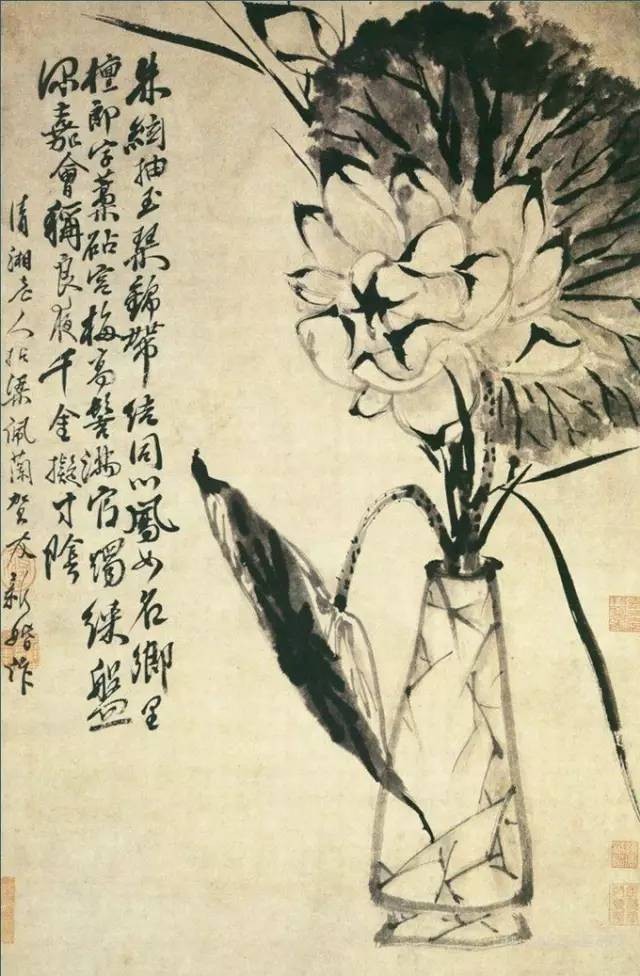 朱絃抽玉琹錦帶結同心鳳女名鄉里
檀郎字藁砧宮梅高髻滿官燭綠盤
深嘉會稱良夜千金擬寸陰
清湘老人拈梁佩蘭賀友新婚作